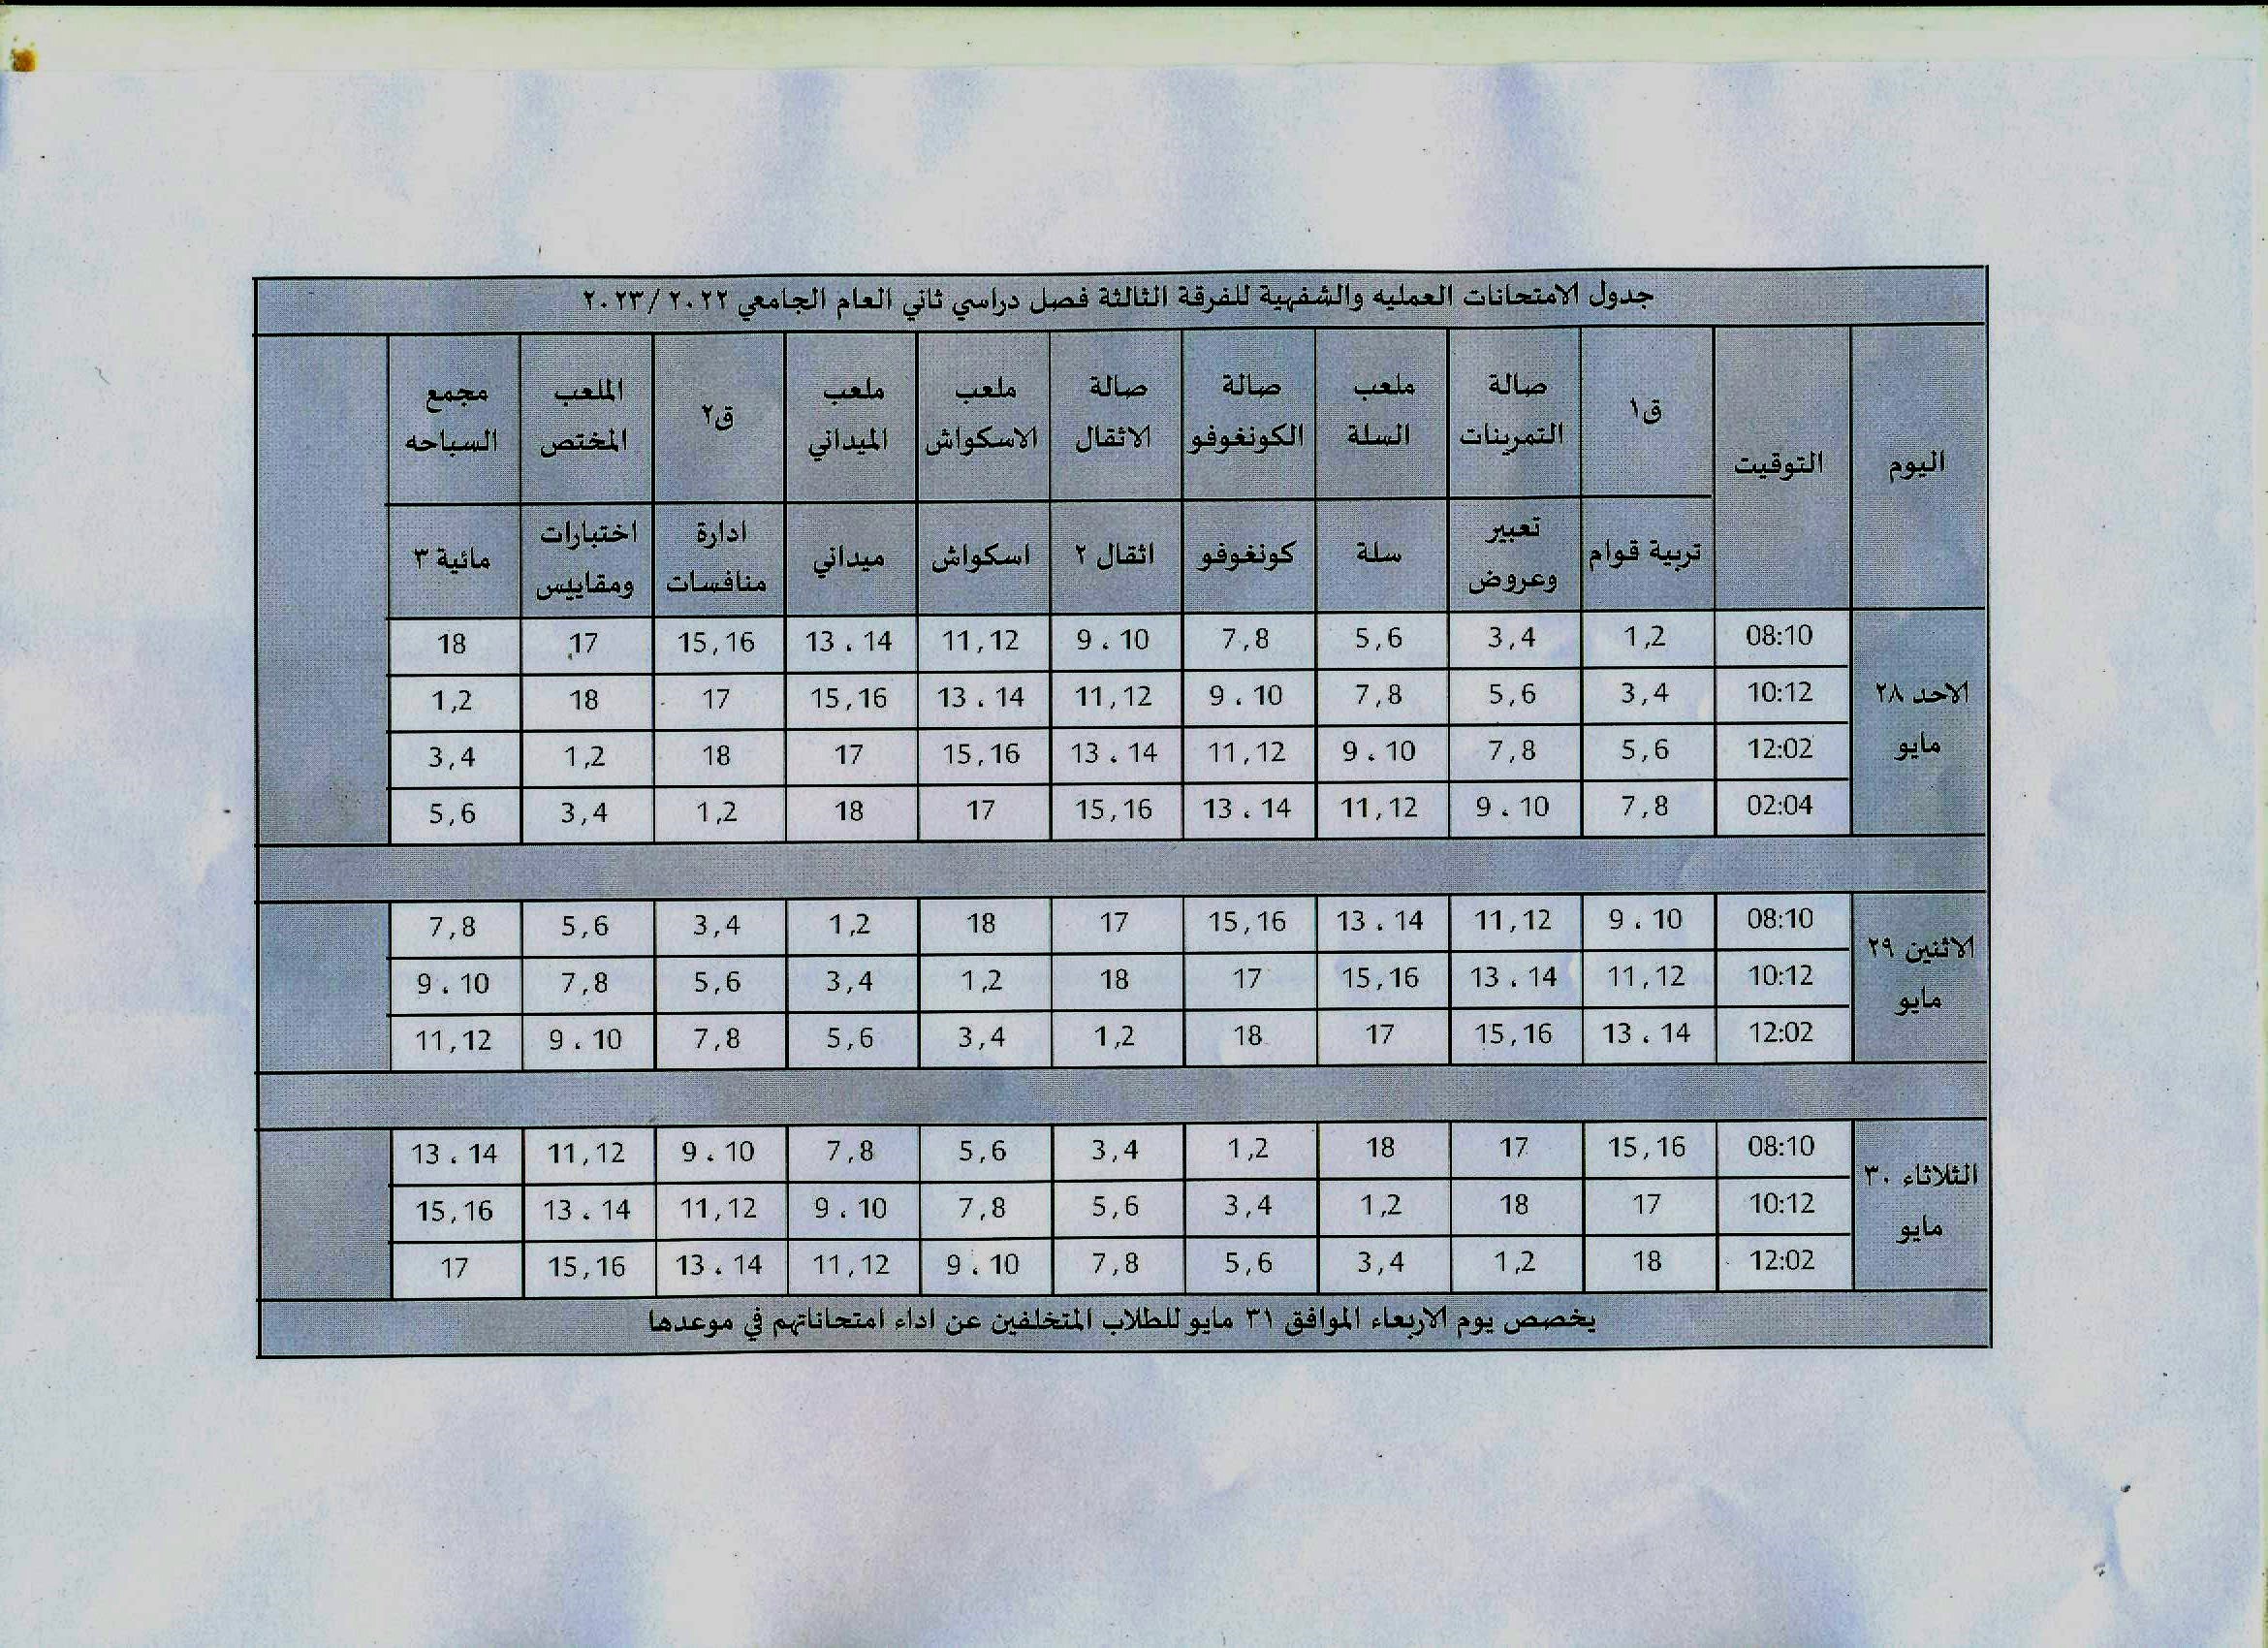 جدول الامتحانات العمليه والشفهية للفرقة الثالثة فصل دراسي ثاني العام الجامعي ٢٠٢٢/ ٢٠٢٣
اليوم التوقيت ق١ صالة التمرينات ملعب السلة صالة الكونغوفو صالة الاثقال ملعب الاسكواش ملعب الميداني ق٢ الملعب المختص مجمع السباحه
تربية قوام تعبير وعروض سلة كونغوفو اثقال ٢ اسكواش ميداني ادارة منافسات اختبارات ومقاييس مائية ٣
الاحد ٢٨ مايو
08:10 1,2 3,4 5,6 7,8 9، 10 11,12 13، 14 15,16 17 18
10:12 3,4 5,6 7,8 9، 10 11,12 13، 14 15,16 17 18 1,2
12:02 5,6 7,8 9، 10 11,12 13، 14 15,16 17 18 1,2 3,4
02:04 7,8 9، 10 11,12 13، 14 15,16 17 18 1,2 3,4 5,6
الاثنين ٢٩ مايو
08:10 9، 10 11,12 13، 14 15,16 17 18 1,2 3,4 5,6 7,8
10:12 11,12 13، 14 15,16 17 18 1,2 3,4 5,6 7,8 9، 10
12:02 13، 14 15,16 17 18 1,2 3,4 5,6 7,8 9، 10 11,12
الثلاثاء ٣٠ مايو
08:10 15,16 17 18 1,2 3,4 5,6 7,8 9، 10 11,12 13، 14
10:12 17 18 1,2 3,4 5,6 7,8 9، 10 11,12 13، 14 15,16
12:02 18 1,2 3,4 5,6 7,8 9، 10 11,12 13، 14 15,16 17
يخصص يوم الاربعاء الموافق ٣١ مايو للطلاب المتخلفين عن اداء امتحاناتهم في موعدها